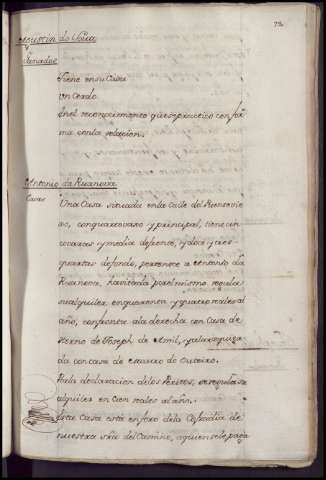 73
Agustin do Souto
Ganados
Tiene en su Casa
Un Cerdo
En el reconocimiento que se practico confor
ma con la relacion.
Antonio da Ruanova
Casas
Una Casa situada en la Calle del
con quarto vaxo y principal, tiene cin
co varas y media de frente, y doce y tres
quartas de fondo, pertenece a Antonio da
Ruanova, havitada por el mismo regula
su alquiler en quarenta y quatro reales al
año, confronta a la derecha con Casa de
Horno de Joseph de Amil, y a la izquier
da con casa de Mauro de Outeiro.
Por la declaracion de los Peritos, se regula su
alquiler en Cien reales al año.
Esta Casa està en foro de la Cofradia de
nuestra sra. del Camino, a quien se le paga